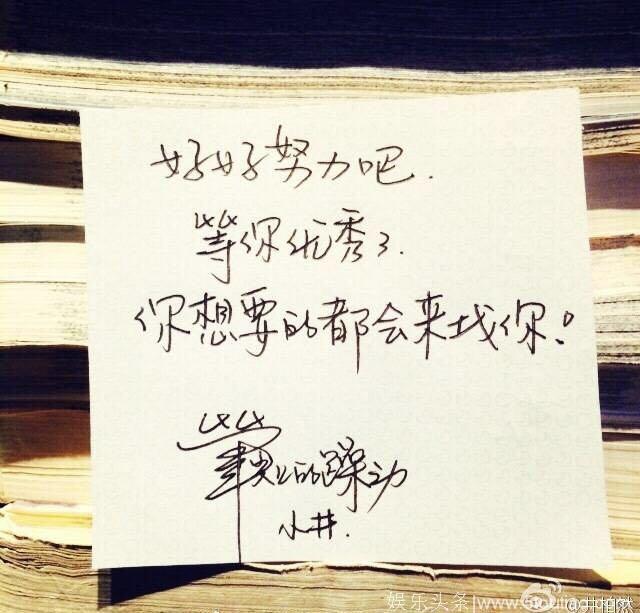 好好努力吧.
等你优秀了.
你想要的都会来找你!
的躁动
小井.
娱乐头条
@井柏然